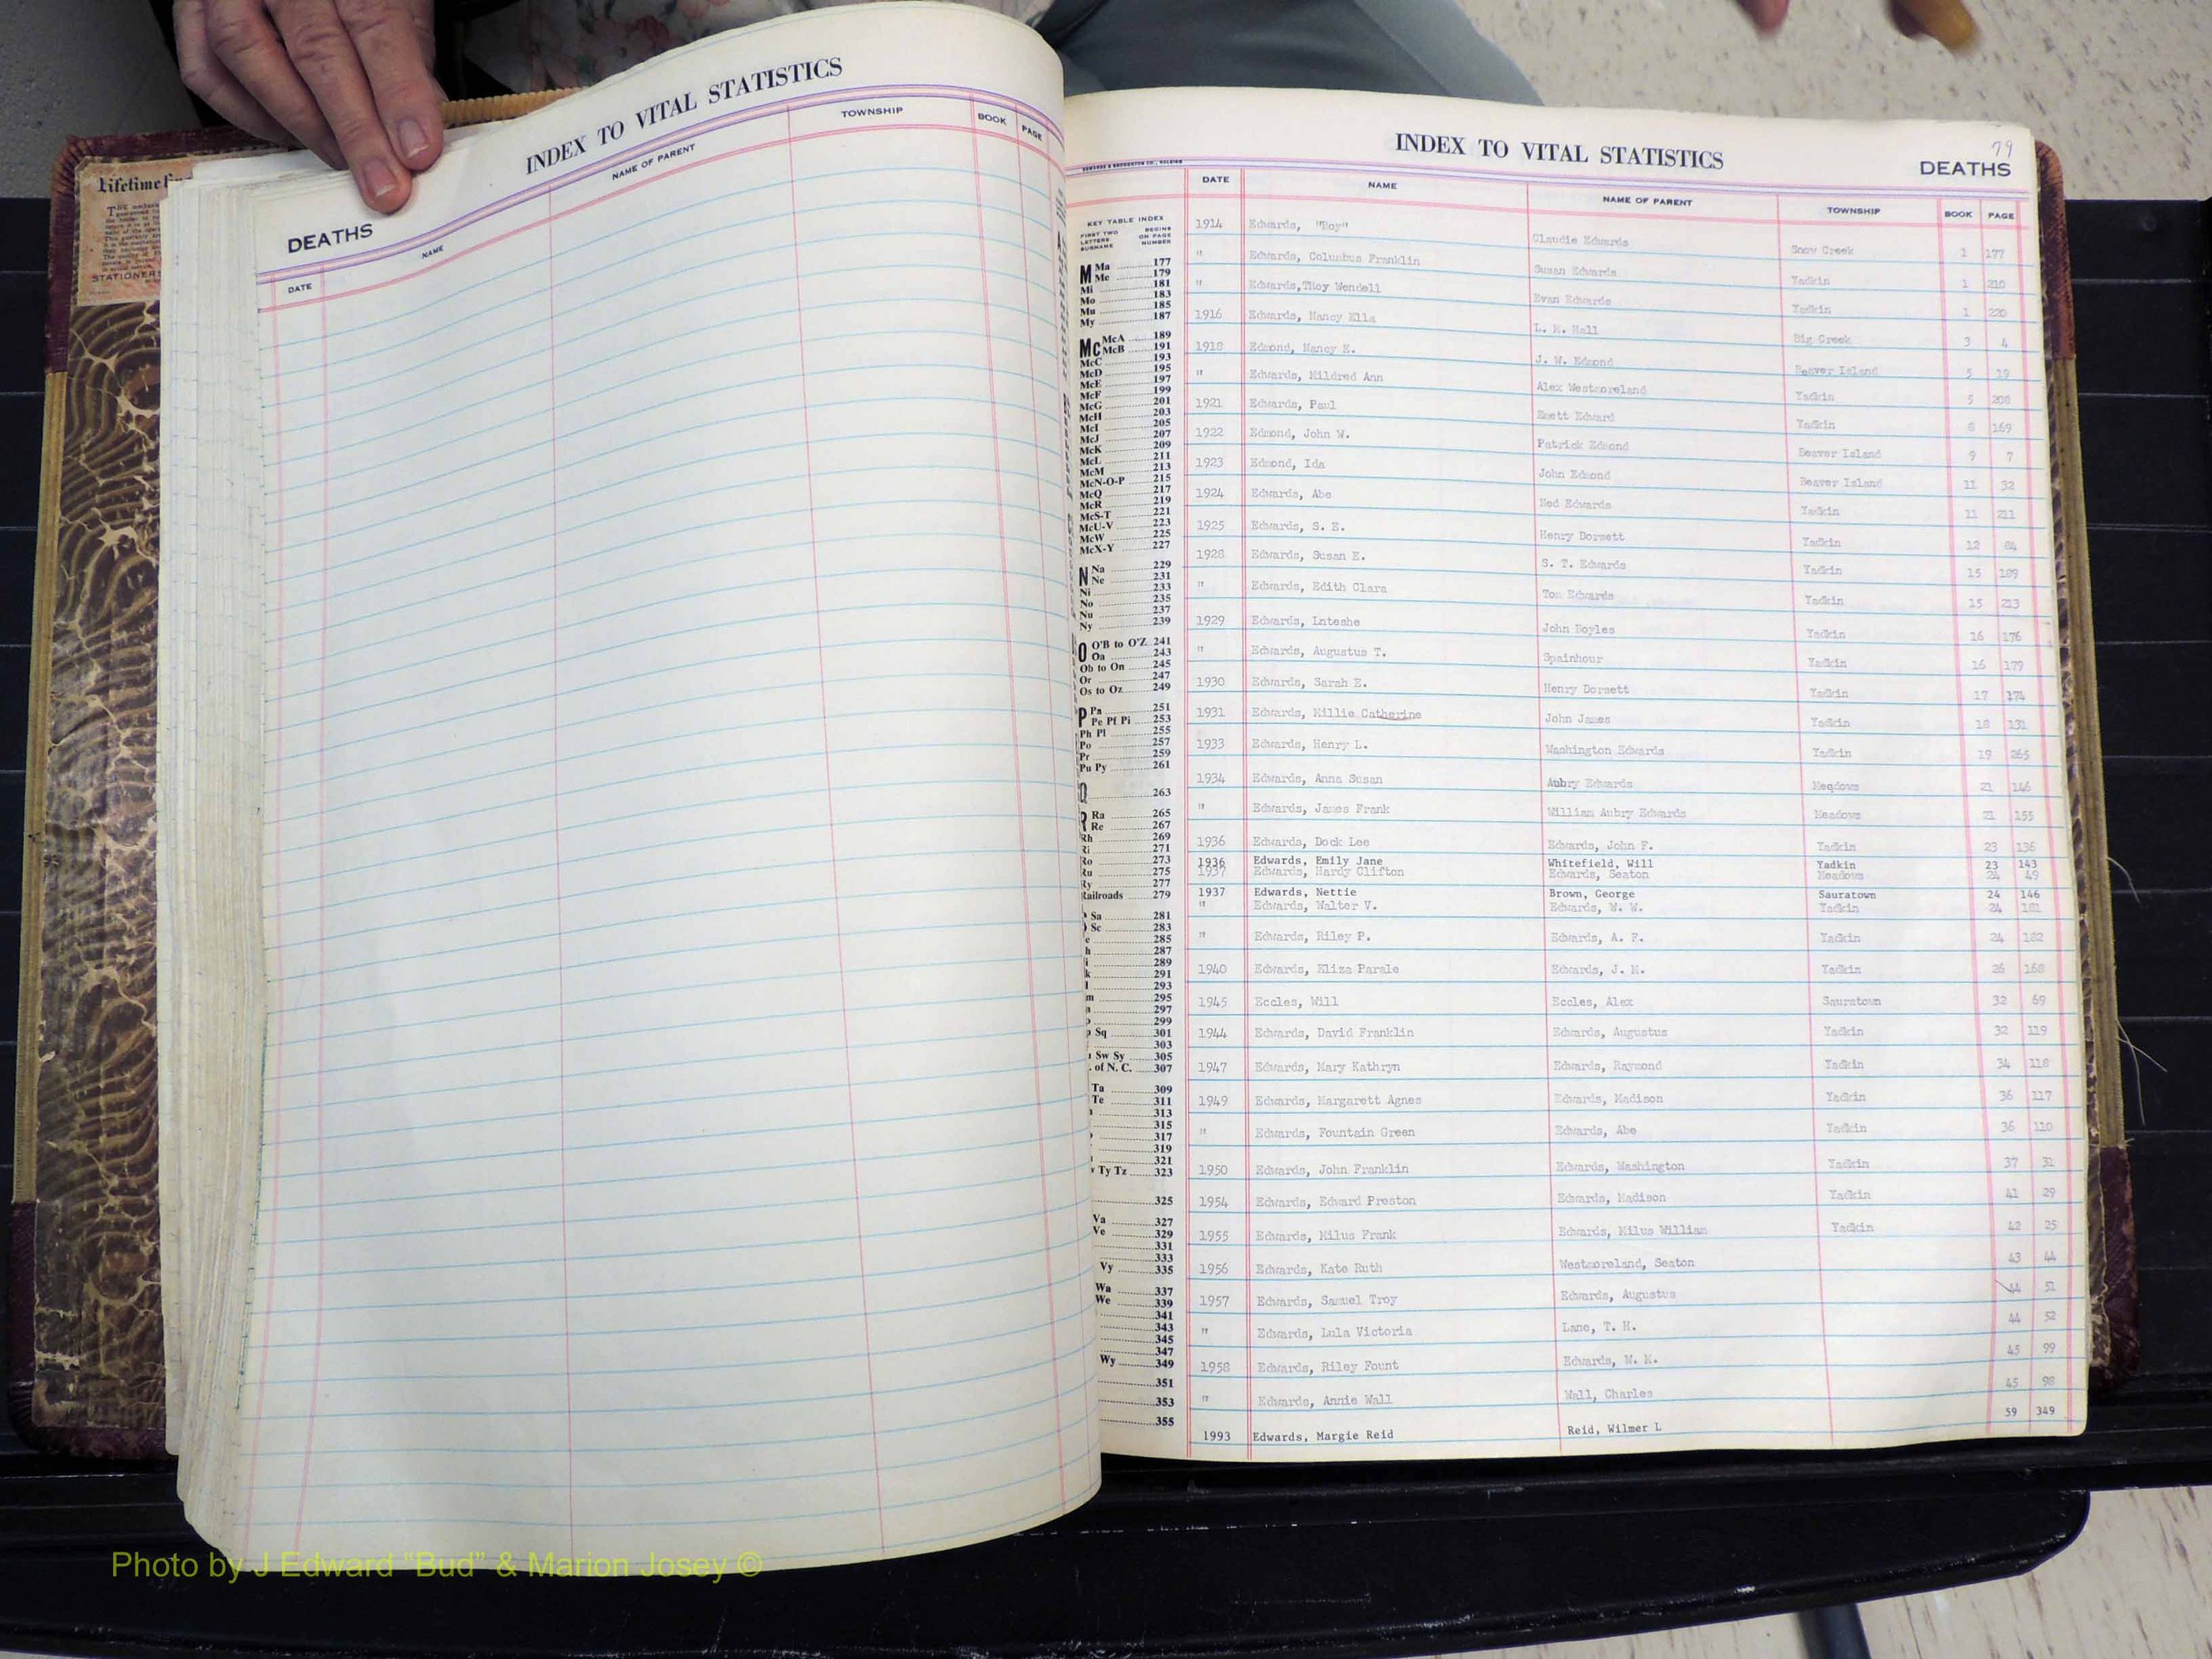 Lifetime
THE
STATIONERS
INDEX TO VITAL STATISTICS
DEATHS
DATE NAME NAME OF PARENT TOWNSHIP BOOK PAGE
79
INDEX TO VITAL STATISTICS
DEATHS
DATE NAME NAME OF PARENT TOWNSHIP BOOK PAGE
1914 Edwards, "Boy" Claudie Edwards Snow Creek 1 177
" Edwards, Columbus Franklin Susan Edwards Yadkin 1 210
" Edwards,TRoy Wendell Evan Edwards Yadkin 1 220
1916 Edwards, Nancy Ella L. M. Hall Big Creek 3 4
1918 Edmond, Nancy E. J. W. Edmond Beaver Island 5 19
" Edwards, Mildred Ann Alex Westmoreland Yadkin 5 208
1921 Edwards, Paul Emett Edward Yadkin 8 169
1922 Edmond, John W. Patrick Edmond Beaver Island 9 7
1923 Edmond, Ida John Edmond Beaver Island 11 32
1924 Edwards, Abe Ned Edwards Yadkin 11 211
1925 Edwards, S. E. Henry Dorsett Yadkin 12 84
1928 Edwards, Susan E. S. T. Edwards Yadkin 15 189
" Edwards, Edith Clara Tom Edwards Yadkin 15 213
1929 Edwards, Luteshe John Boyles Yadkin 16 176
" Edwards, Augustus T. Spainhour Yadkin 16 179
1930 Edwards, Sarah E. Henry Dorsett Yadkin 17 174
1931 Edwards, Millie Catherine John James Yadkin 18 131
1933 Edwards, Henry L. Washington Edwards Yadkin 19 265
1934 Edwards, Anna Susan Aubry Edwards Meadows 21 146
" Edwards, James Frank William Aubry Edwards Meadows 21 155
1936 Edwards, Dock Lee Edwards, John F. Yadkin 23 136
1936 Edwards, Emily Jane Whitefield, Will Yadkin 23 143
1937 Edwards, Hardy Clifton Edwards, Seaton Meadows 24 49
1937 Edwards, Nettie Brown, George Sauratown 24 146
" Edwards, Walter V. Edwards, W. W. Yadkin 24 181
" Edwards, Riley P. Edwards, A. F. Yadkin 24 182
1940 Edwards, Eliza Parale Edwards, J. M. Yadkin 26 168
1945 Eccles, Will Eccles, Alex Sauratown 32 69
1944 Edwards, David Franklin Edwards, Augustus Yadkin 32 119
1947 Edwards, Mary Kathryn Edwards, Raymond Yadkin 34 118
1949 Edwards, Margarett Agnes Edwards, Madison Yadkin 36 117
" Edwards, Fountain Green Edwards, Abe Yadkin 36 110
1950 Edwards, John Franklin Edwards, Washington Yadkin 37 31
1954 Edwards, Edward Preston Edwards, Madison Yadkin 41 29
1955 Edwards, Milus Frank Edwards, Milus William Yadkin 42 25
1956 Edwards, Kate Ruth Westmoreland, Seaton 43 44
1957 Edwards, Samuel Troy Edwards, Augustus 44 51
" Edwards, Lula Victoria Lane, T. H. 44 52
1958 Edwards, Riley Fount Edwards, W. M. 45 99
" Edwards, Annie Wall Wall, Charles 45 98
1993 Edwards, Margie Reid Reid, Wilmer L 59 349
KEY TABLE INDEX
FIRST TWO LETTERS SURNAME BEGINS ON PAGE NUMBER
M Ma 177
Me 179
Mi 181
Mo 183
Mu 185
My 187
Mc McA 189
McB 191
McC 193
McD 195
McE 197
McF 199
McG 201
McH 203
McI 205
McJ 207
McK 209
McL 211
McM 213
McN-O-P 215
McQ 217
McR 219
McS-T 221
McU-V 223
McW 225
McX-Y 227
N Na 229
Ne 231
Ni 233
No 235
Nu 237
Ny 239
O O'B to O'Z 241
Oa 243
Ob to On 245
Or 247
Os to Oz 249
P Pa 251
Pe Pf Pi 253
Ph Pl 255
Po 257
Pr 259
Pu Py 261
Q 263
R Ra 265
Re 267
Rh 269
Ri 271
Ro 273
Ru 275
Ry 277
Railroads 279
Sa 281
Sc 283
285
287
289
291
293
295
297
299
Sq 301
303
Sw Sy 305
of N. C. 307
Ta 309
Te 311
313
315
317
319
321
Ty Tz 323
325
Va 327
Ve 329
331
333
Vy 335
Wa 337
We 339
341
343
345
347
Wy 349
351
353
355
Photo by J Edward "Bud" & Marion Josey ©